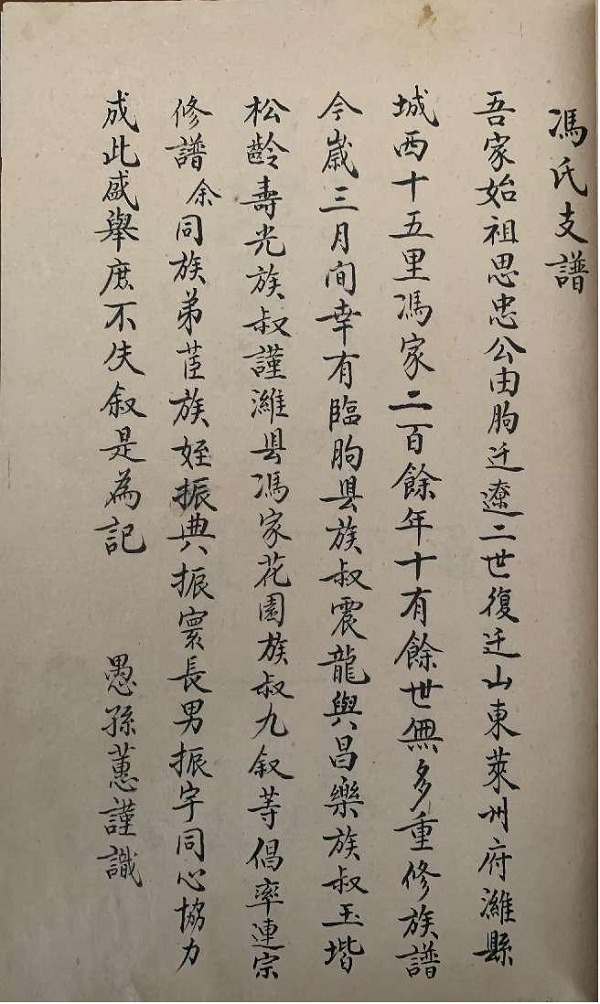 馮氏支譜
吾家始祖思忠公由朐迁遼二世復迁山東萊州府濰縣
城西十五里馮家二百餘年十有餘世無多重修族譜
今歲三月间幸有臨朐县族叔震龍與昌樂族叔玉堦
松齡壽光族叔謹濰县馮家花園族叔九叙等倡率連宗
修譜余同族弟苣族姪振典振寰長男振宇同心協力
成此盛舉庶不失叙是為記
愚孫蕙謹識